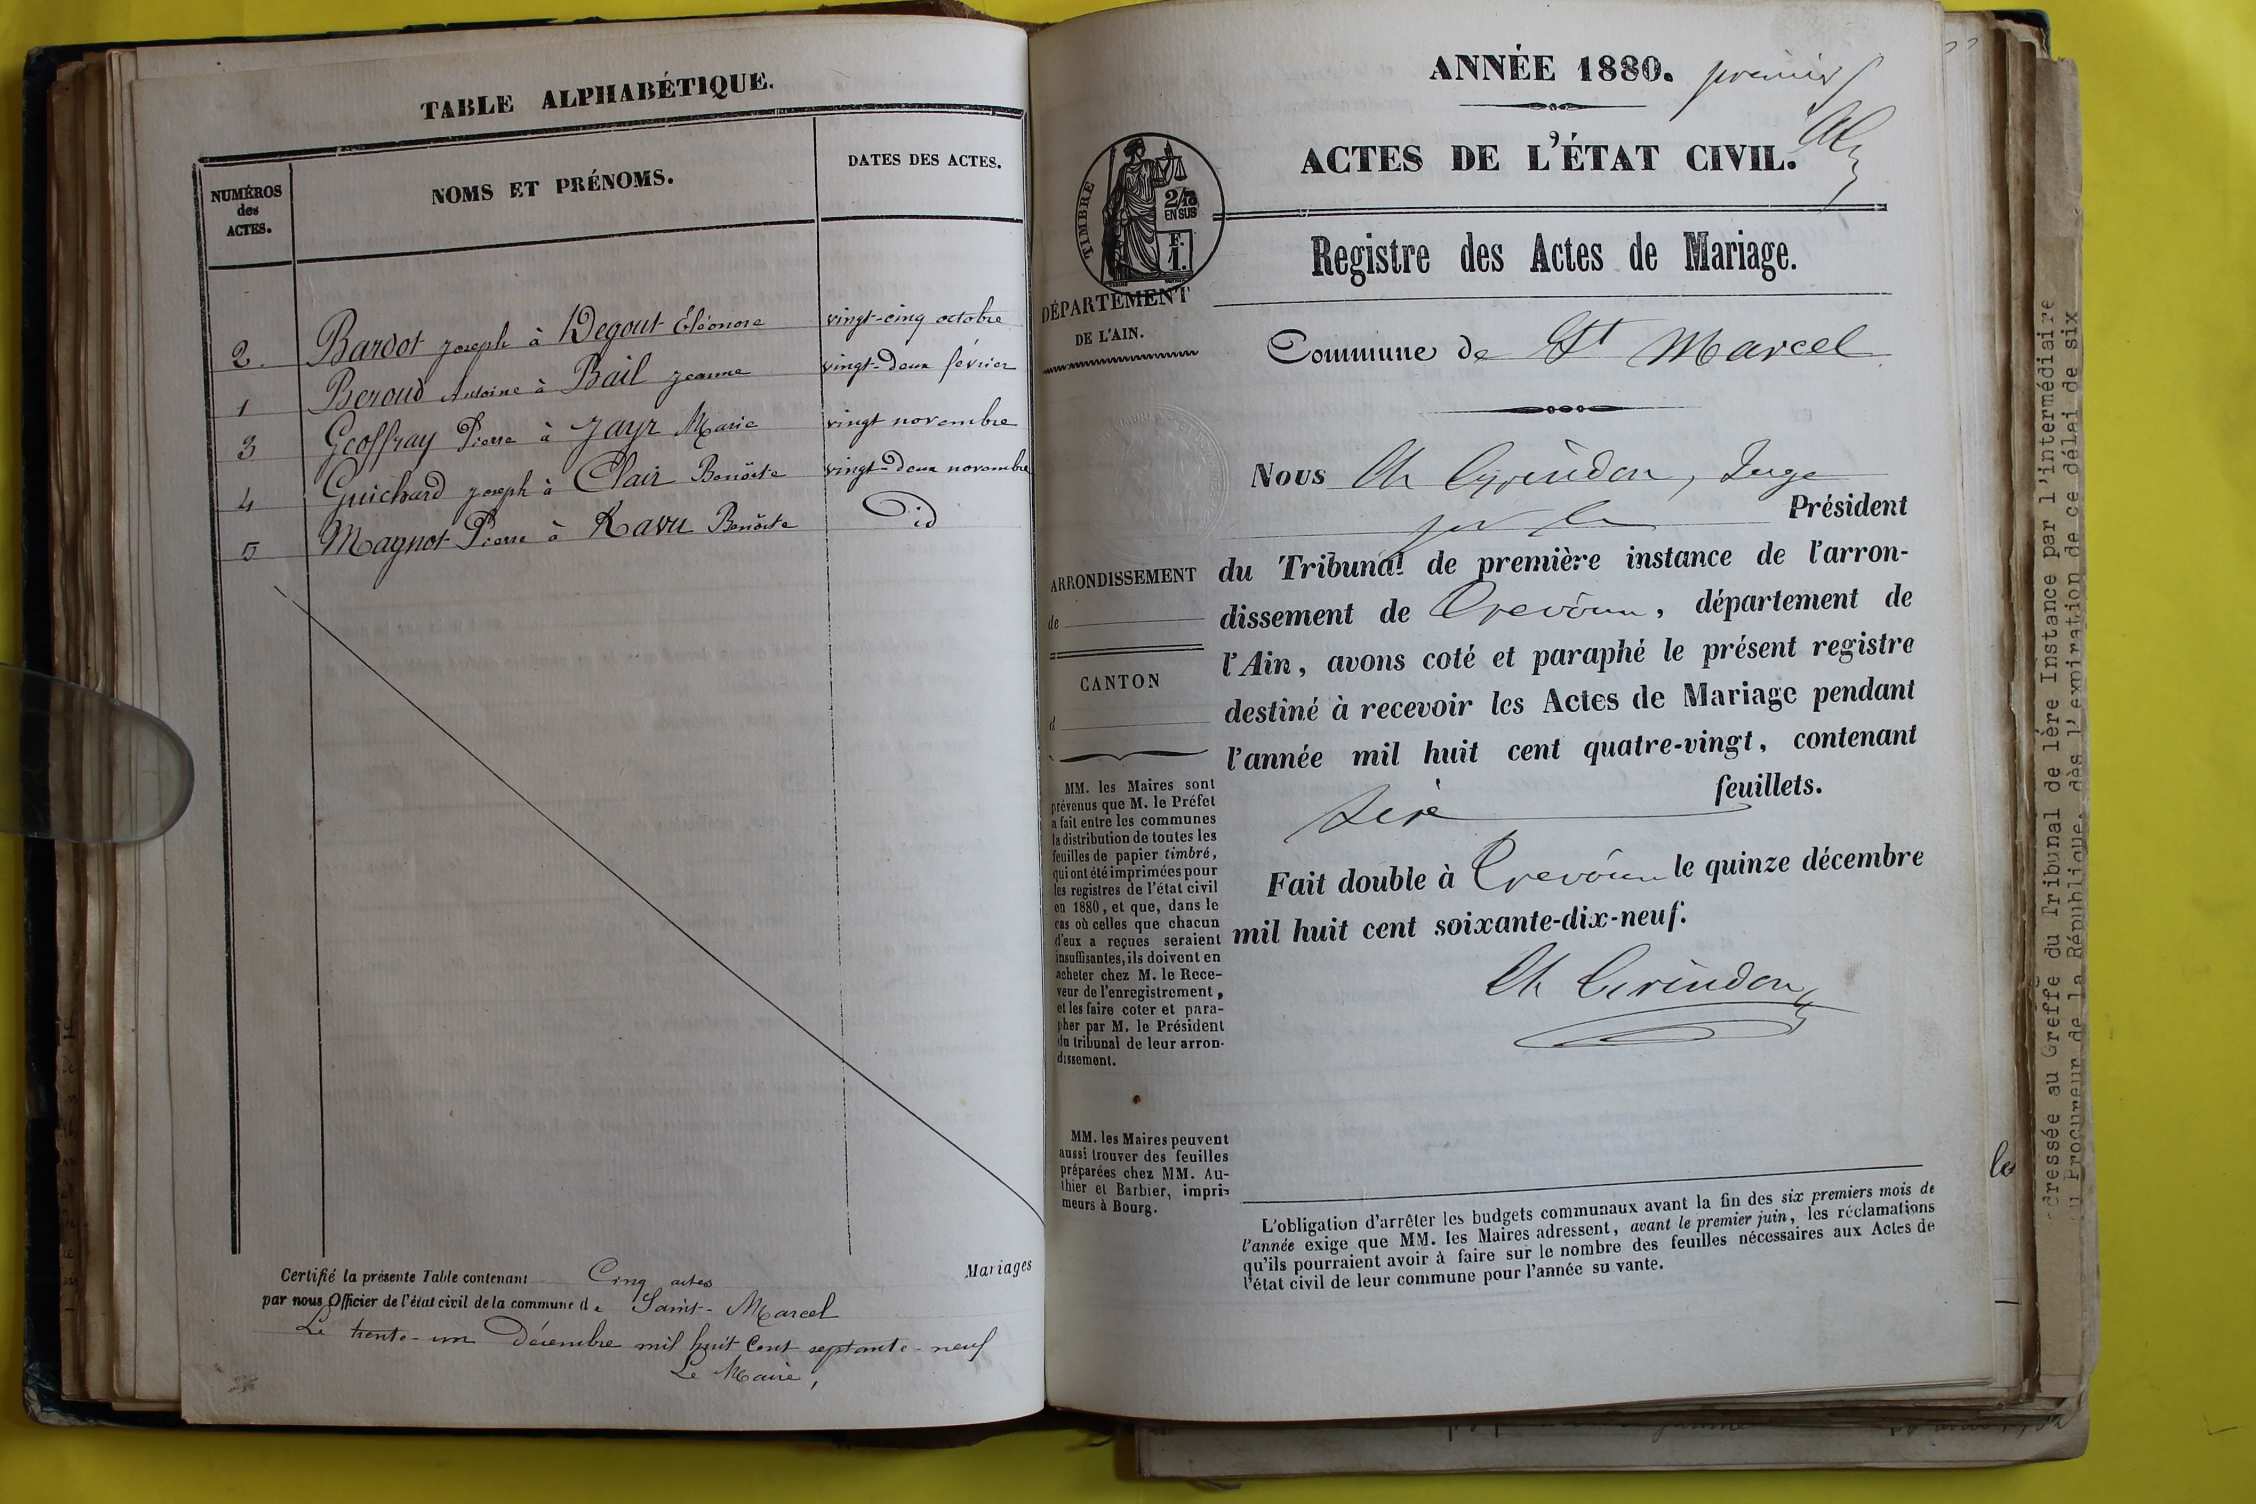 TABLE ALPHABÉTIQUE.
NUMÉROS
des
ACTES.
NOMS ET PRÉNOMS.
DATES DES ACTES.
2. Bardot Joseph à Degout Éléonore vingt-cinq octobre
1 Beroud Antoine à Bail Jeanne vingt-deux février
3 Geoffray Pierre à Jayr Marie vingt novembre
4 Guichard Joseph à Clair Benoîte vingt-deux novembre
5 Magnot Pierre à Ravu Benoîte id
Certifié la présente Table contenant Cinq actes Mariages
par nous Officier de l'état civil de la commune de Saint-Marcel
Le trente-un Décembre mil huit cent septante-neuf
Le Maire,
ANNÉE 1880. premier
ACTES DE L'ÉTAT CIVIL.
TIMBRE
2/10
EN SUS
F.
1.
Registre des Actes de Mariage.
DÉPARTEMENT
DE L'AIN.
Commune de St Marcel
Nous Ch Girindon, Juge
Président
du Tribunal de première instance de l'arron-
dissement de Trévoux, département de
l'Ain, avons coté et paraphé le présent registre
destiné à recevoir les Actes de Mariage pendant
l'année mil huit cent quatre-vingt, contenant
feuillets.
Fait double à Trévoux le quinze décembre
mil huit cent soixante-dix-neuf.
Ch Girindon
ARRONDISSEMENT
de
CANTON
d
MM. les Maires sont
prévenus que M. le Préfet
a fait entre les communes
la distribution de toutes les
feuilles de papier timbré,
qui ont été imprimées pour
les registres de l'état civil
en 1880, et que, dans le
cas où celles que chacun
d'eux a reçues seraient
insuffisantes, ils doivent en
acheter chez M. le Rece-
veur de l'enregistrement,
et les faire coter et para-
pher par M. le Président
du tribunal de leur arron-
dissement.
MM. les Maires peuvent
aussi trouver des feuilles
préparées chez MM. Au-
thier et Barbier, impri-
meurs à Bourg.
L'obligation d'arrêter les budgets communaux avant la fin des six premiers mois de
l'année exige que MM. les Maires adressent, avant le premier juin, les réclamations
qu'ils pourraient avoir à faire sur le nombre des feuilles nécessaires aux Actes de
l'état civil de leur commune pour l'année su vante.
les
dressée au Greffe du Tribunal de 1ère Instance par l'intermédiaire
du Procureur de la République, dès l'expiration de ce délai de six